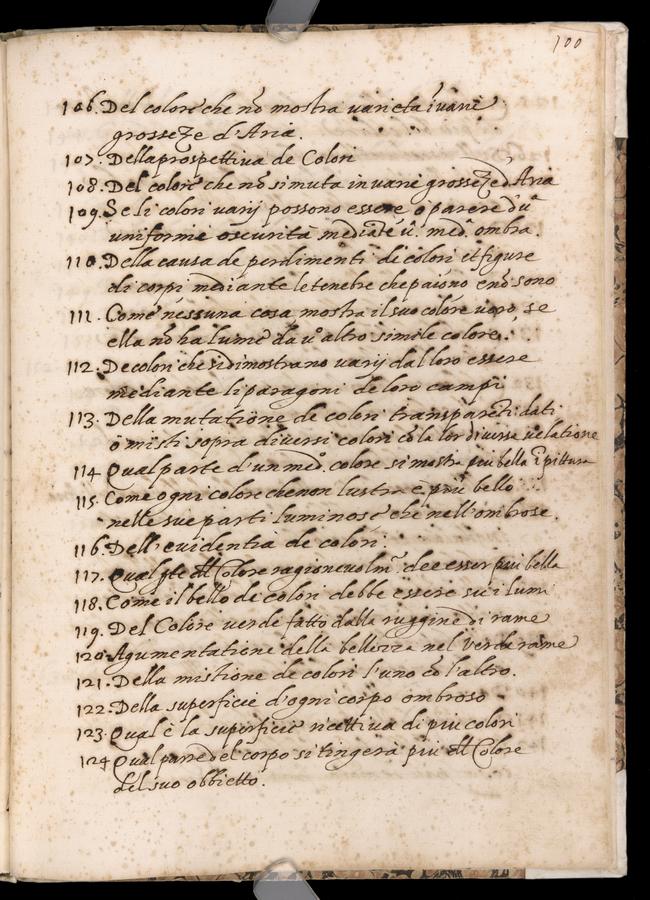 100
106. Del colore che nō mostra varieta ī varie
grosseze d'Aria.
107. Della prospettiva de Colori
108. Del colore che nō si muta in varie grosseze d'Aria
109. Se li colori varij possono essere o parere d'ua
uniforme oscurità mediāte u. medª. ombra.
110. Della causa de perdimenti di colori et figure
di corpi mediante le tenebre che paiono e nō sono
111. Come nessuna cosa mostra il suo colore vero, se
ella nō ha lume da u°altro simile colore.
112. De colori che si dimostrano varij dal loro essere
mediante li paragoni de loro campi
113. Della mutatione de colori transparēti dati
o misti sopra diversi colori cō la lor diversa velatione
114 Qual parte d'un medº. colore si mostra più bella ī pittura
115. Come ogni colore che non lustra è più bello
nelle sue parti luminose che nell'ombrose.
116. Dell'evidentia de colori.
117. Qual pte del Colore ragionevolmᵗᵉ dee esser più bella
118. Come il bello de colori debbe essere su i lumi
119. Del Colore verde fatto dalla ruggine di rame
120. Agumentatione della bellezza nel verderame
121. Della mistione de colori l'uno cō l'altro.
122. Della superficie d'ogni corpo ombroso
123. Qual è la superficie ricettiva di più colori
124 Qual parte del corpo si tingerà più del Colore
del suo obbietto.